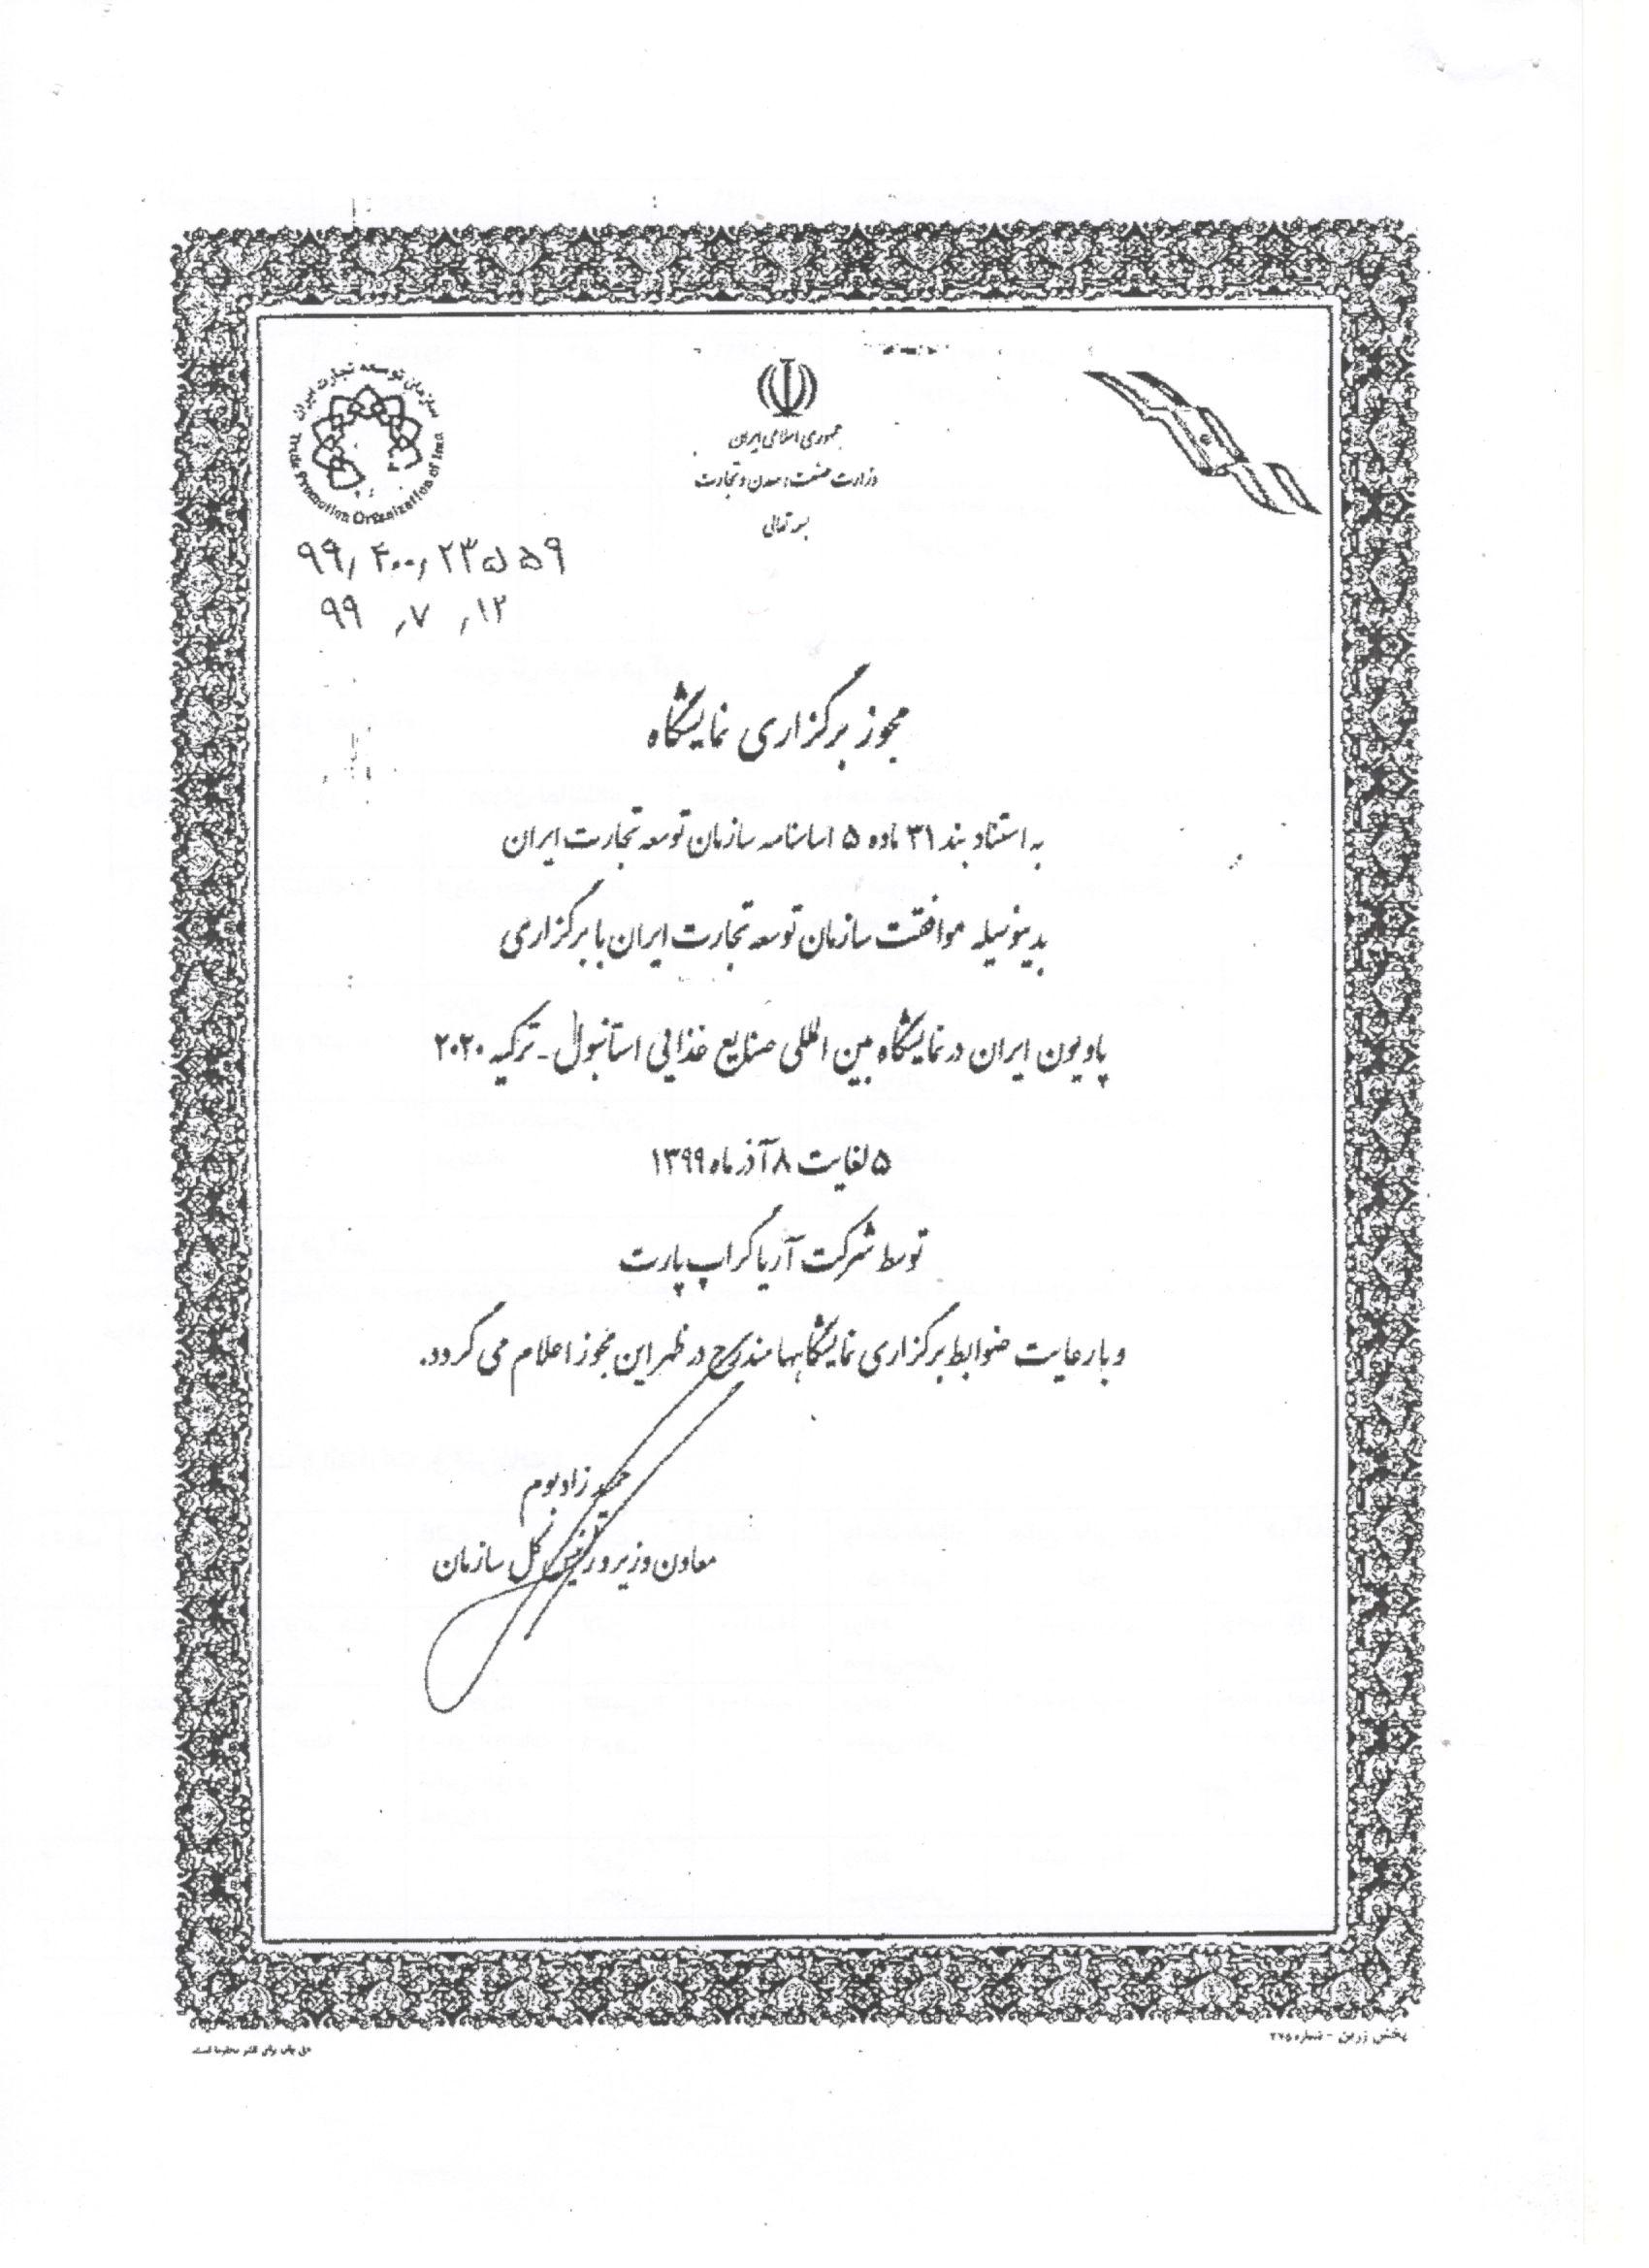 سازمان توسعه تجارت ایران
Trade Promotion Organization of Iran
جمهوری اسلامی ایران
وزارت صنعت، معدن و تجارت
بسمه تعالی
۹۹٫۴۰۰٫۲۳۵۵۹
۹۹٫۷٫۱۲
مجوز برگزاری نمایشگاه
به استناد بند ۳۱ ماده ۵ اساسنامه سازمان توسعه تجارت ایران
بدینوسیله موافقت سازمان توسعه تجارت ایران با برگزاری
پاویون ایران در نمایشگاه بین المللی صنایع غذائی استانبول - ترکیه ۲۰۲۰
۵ لغایت ۸ آذر ماه ۱۳۹۹
توسط شرکت آریا گراپ پارت
و با رعایت ضوابط برگزاری نمایشگاهها مندرج در ظهر این مجوز اعلام می گردد.
حمید زادبوم
معاون وزیر و رئیس کل سازمان
پخش زرین - شماره ۲۷۵